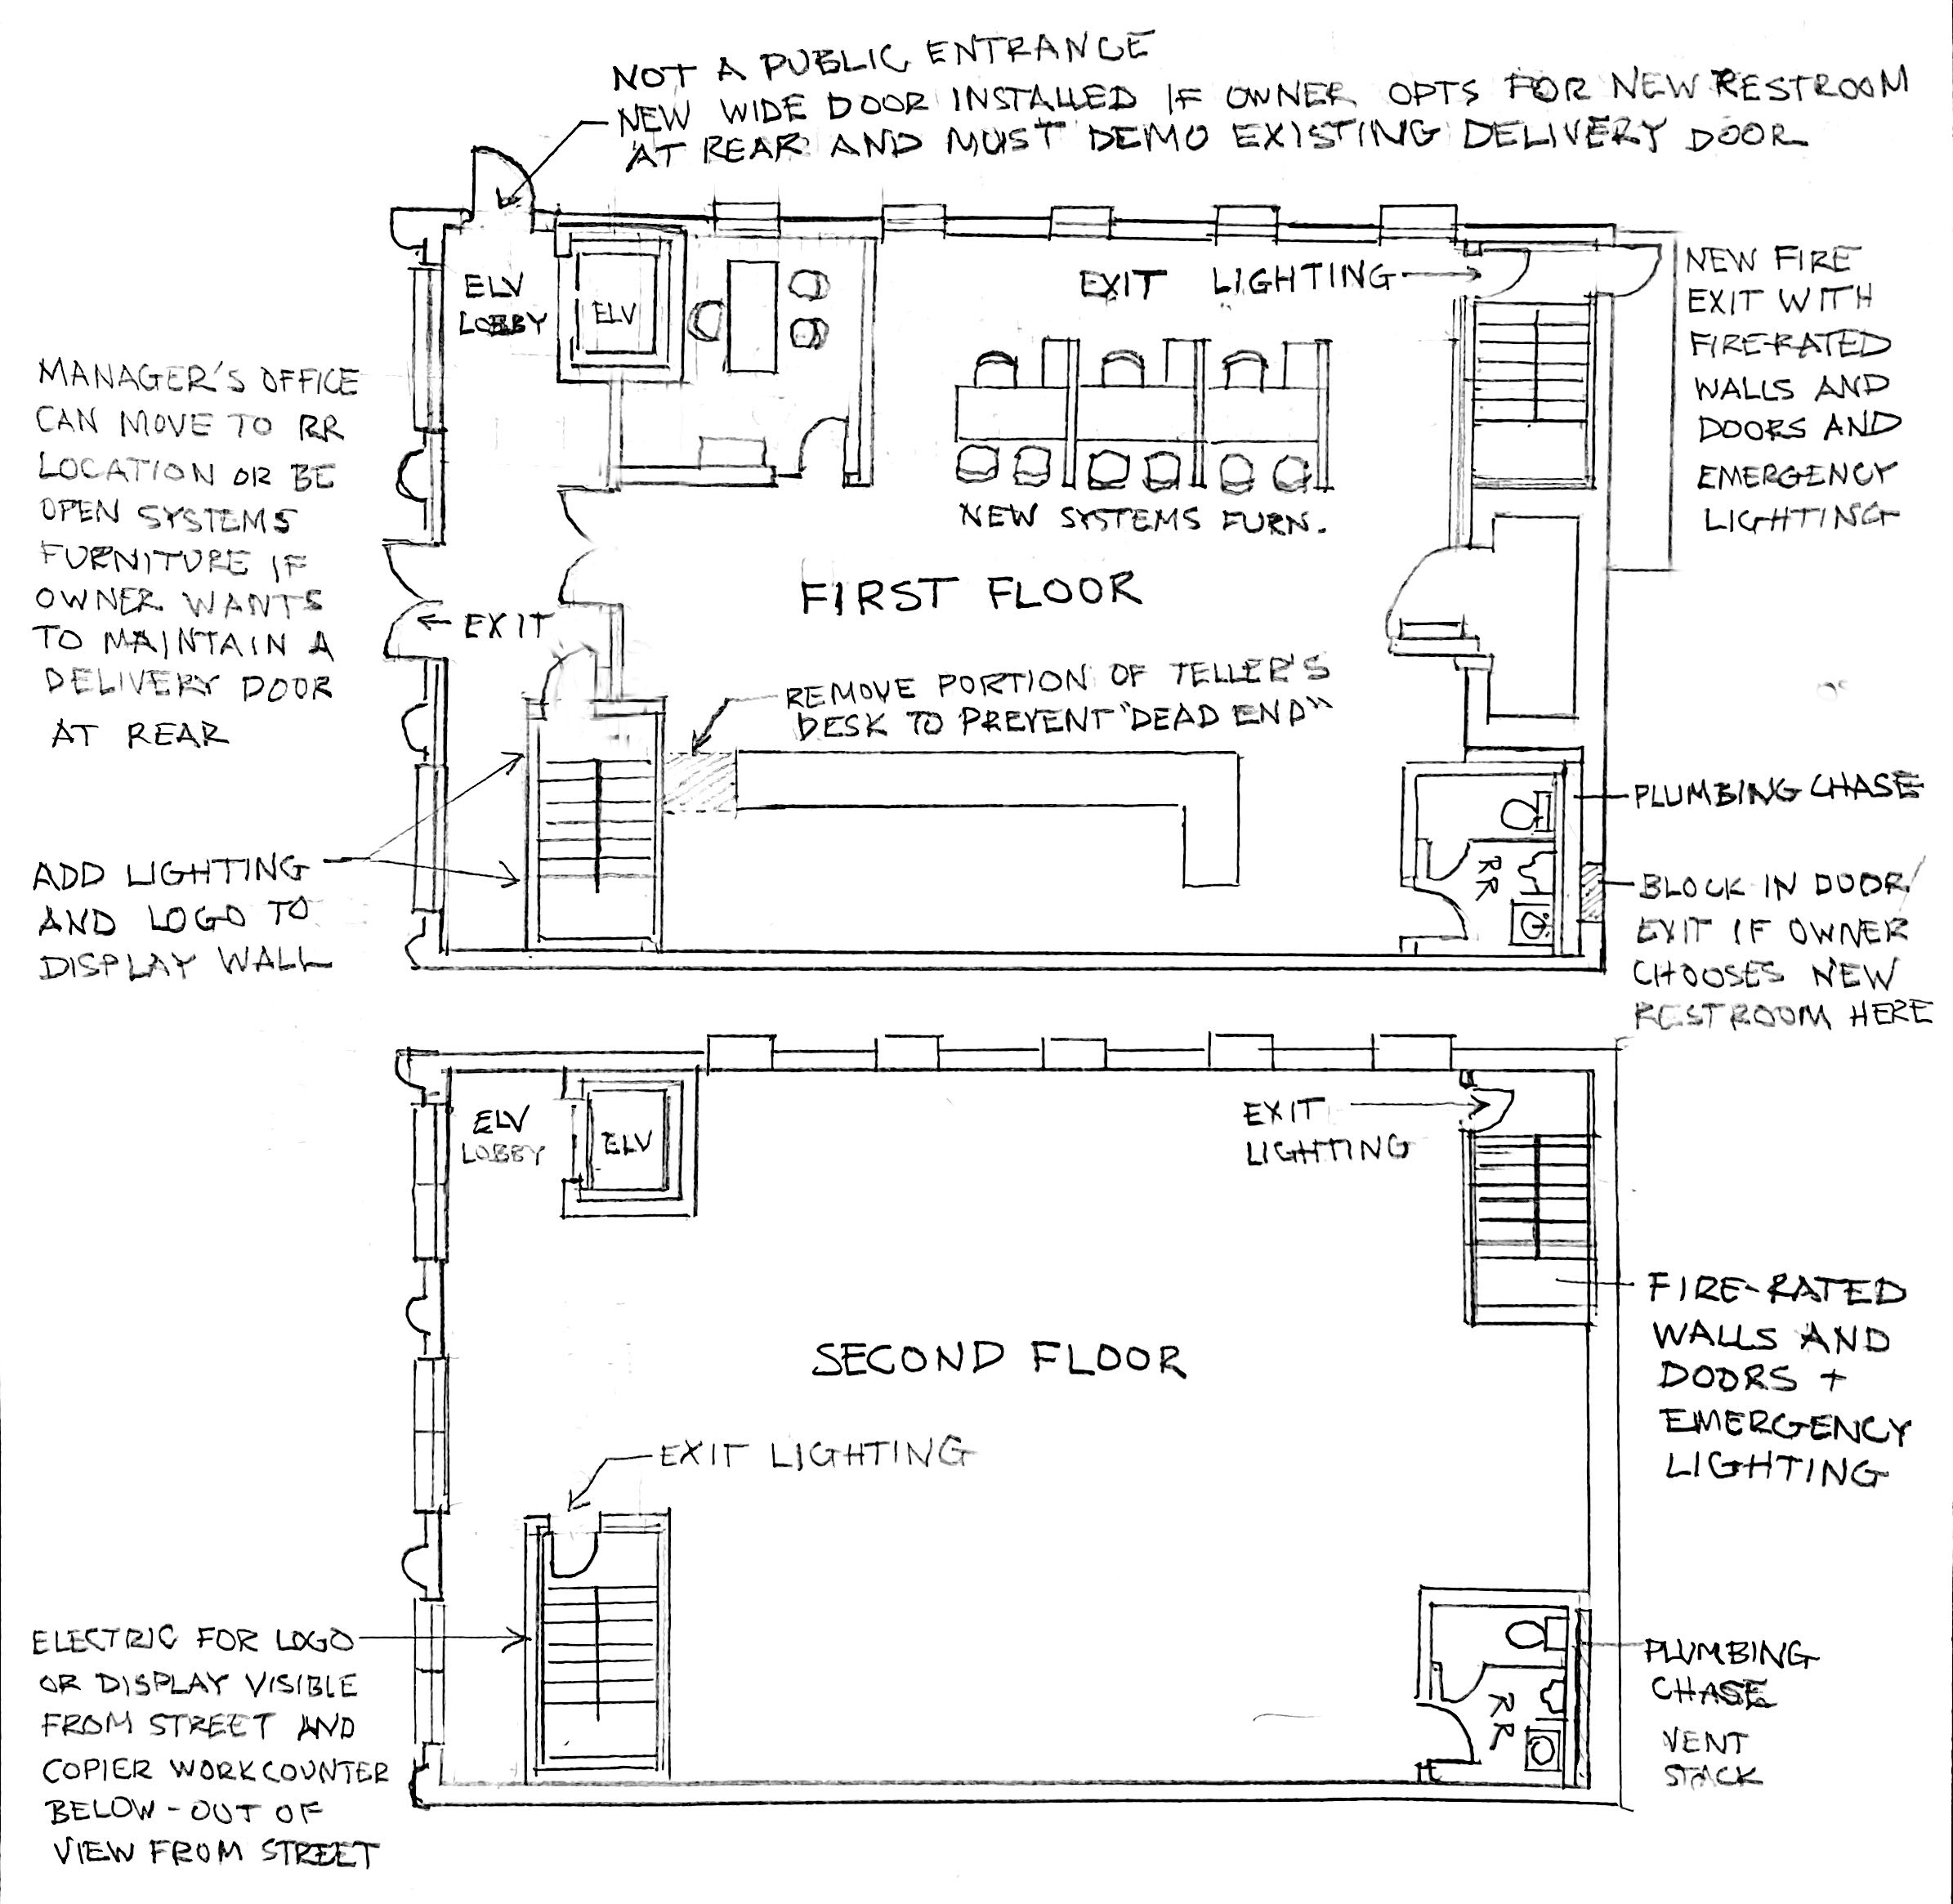 NOT A PUBLIC ENTRANCE
NEW WIDE DOOR INSTALLED IF OWNER OPTS FOR NEW RESTROOM
AT REAR AND MUST DEMO EXISTING DELIVERY DOOR
ELV
LOBBY
ELV
EXIT LIGHTING
NEW FIRE
EXIT WITH
FIRE-RATED
WALLS AND
DOORS AND
EMERGENCY
LIGHTING
MANAGER'S OFFICE
CAN MOVE TO RR
LOCATION OR BE
OPEN SYSTEMS
FURNITURE IF
OWNER WANTS
TO MAINTAIN A
DELIVERY DOOR
AT REAR
NEW SYSTEMS FURN.
FIRST FLOOR
EXIT
REMOVE PORTION OF TELLER'S
DESK TO PREVENT "DEAD END"
PLUMBING CHASE
RR
BLOCK IN DOOR/
EXIT IF OWNER
CHOOSES NEW
RESTROOM HERE
ADD LIGHTING
AND LOGO TO
DISPLAY WALL
ELV
LOBBY
ELV
EXIT
LIGHTING
FIRE-RATED
WALLS AND
DOORS +
EMERGENCY
LIGHTING
SECOND FLOOR
EXIT LIGHTING
ELECTRIC FOR LOGO
OR DISPLAY VISIBLE
FROM STREET AND
COPIER WORKCOUNTER
BELOW - OUT OF
VIEW FROM STREET
RR
PLUMBING
CHASE
VENT
STACK